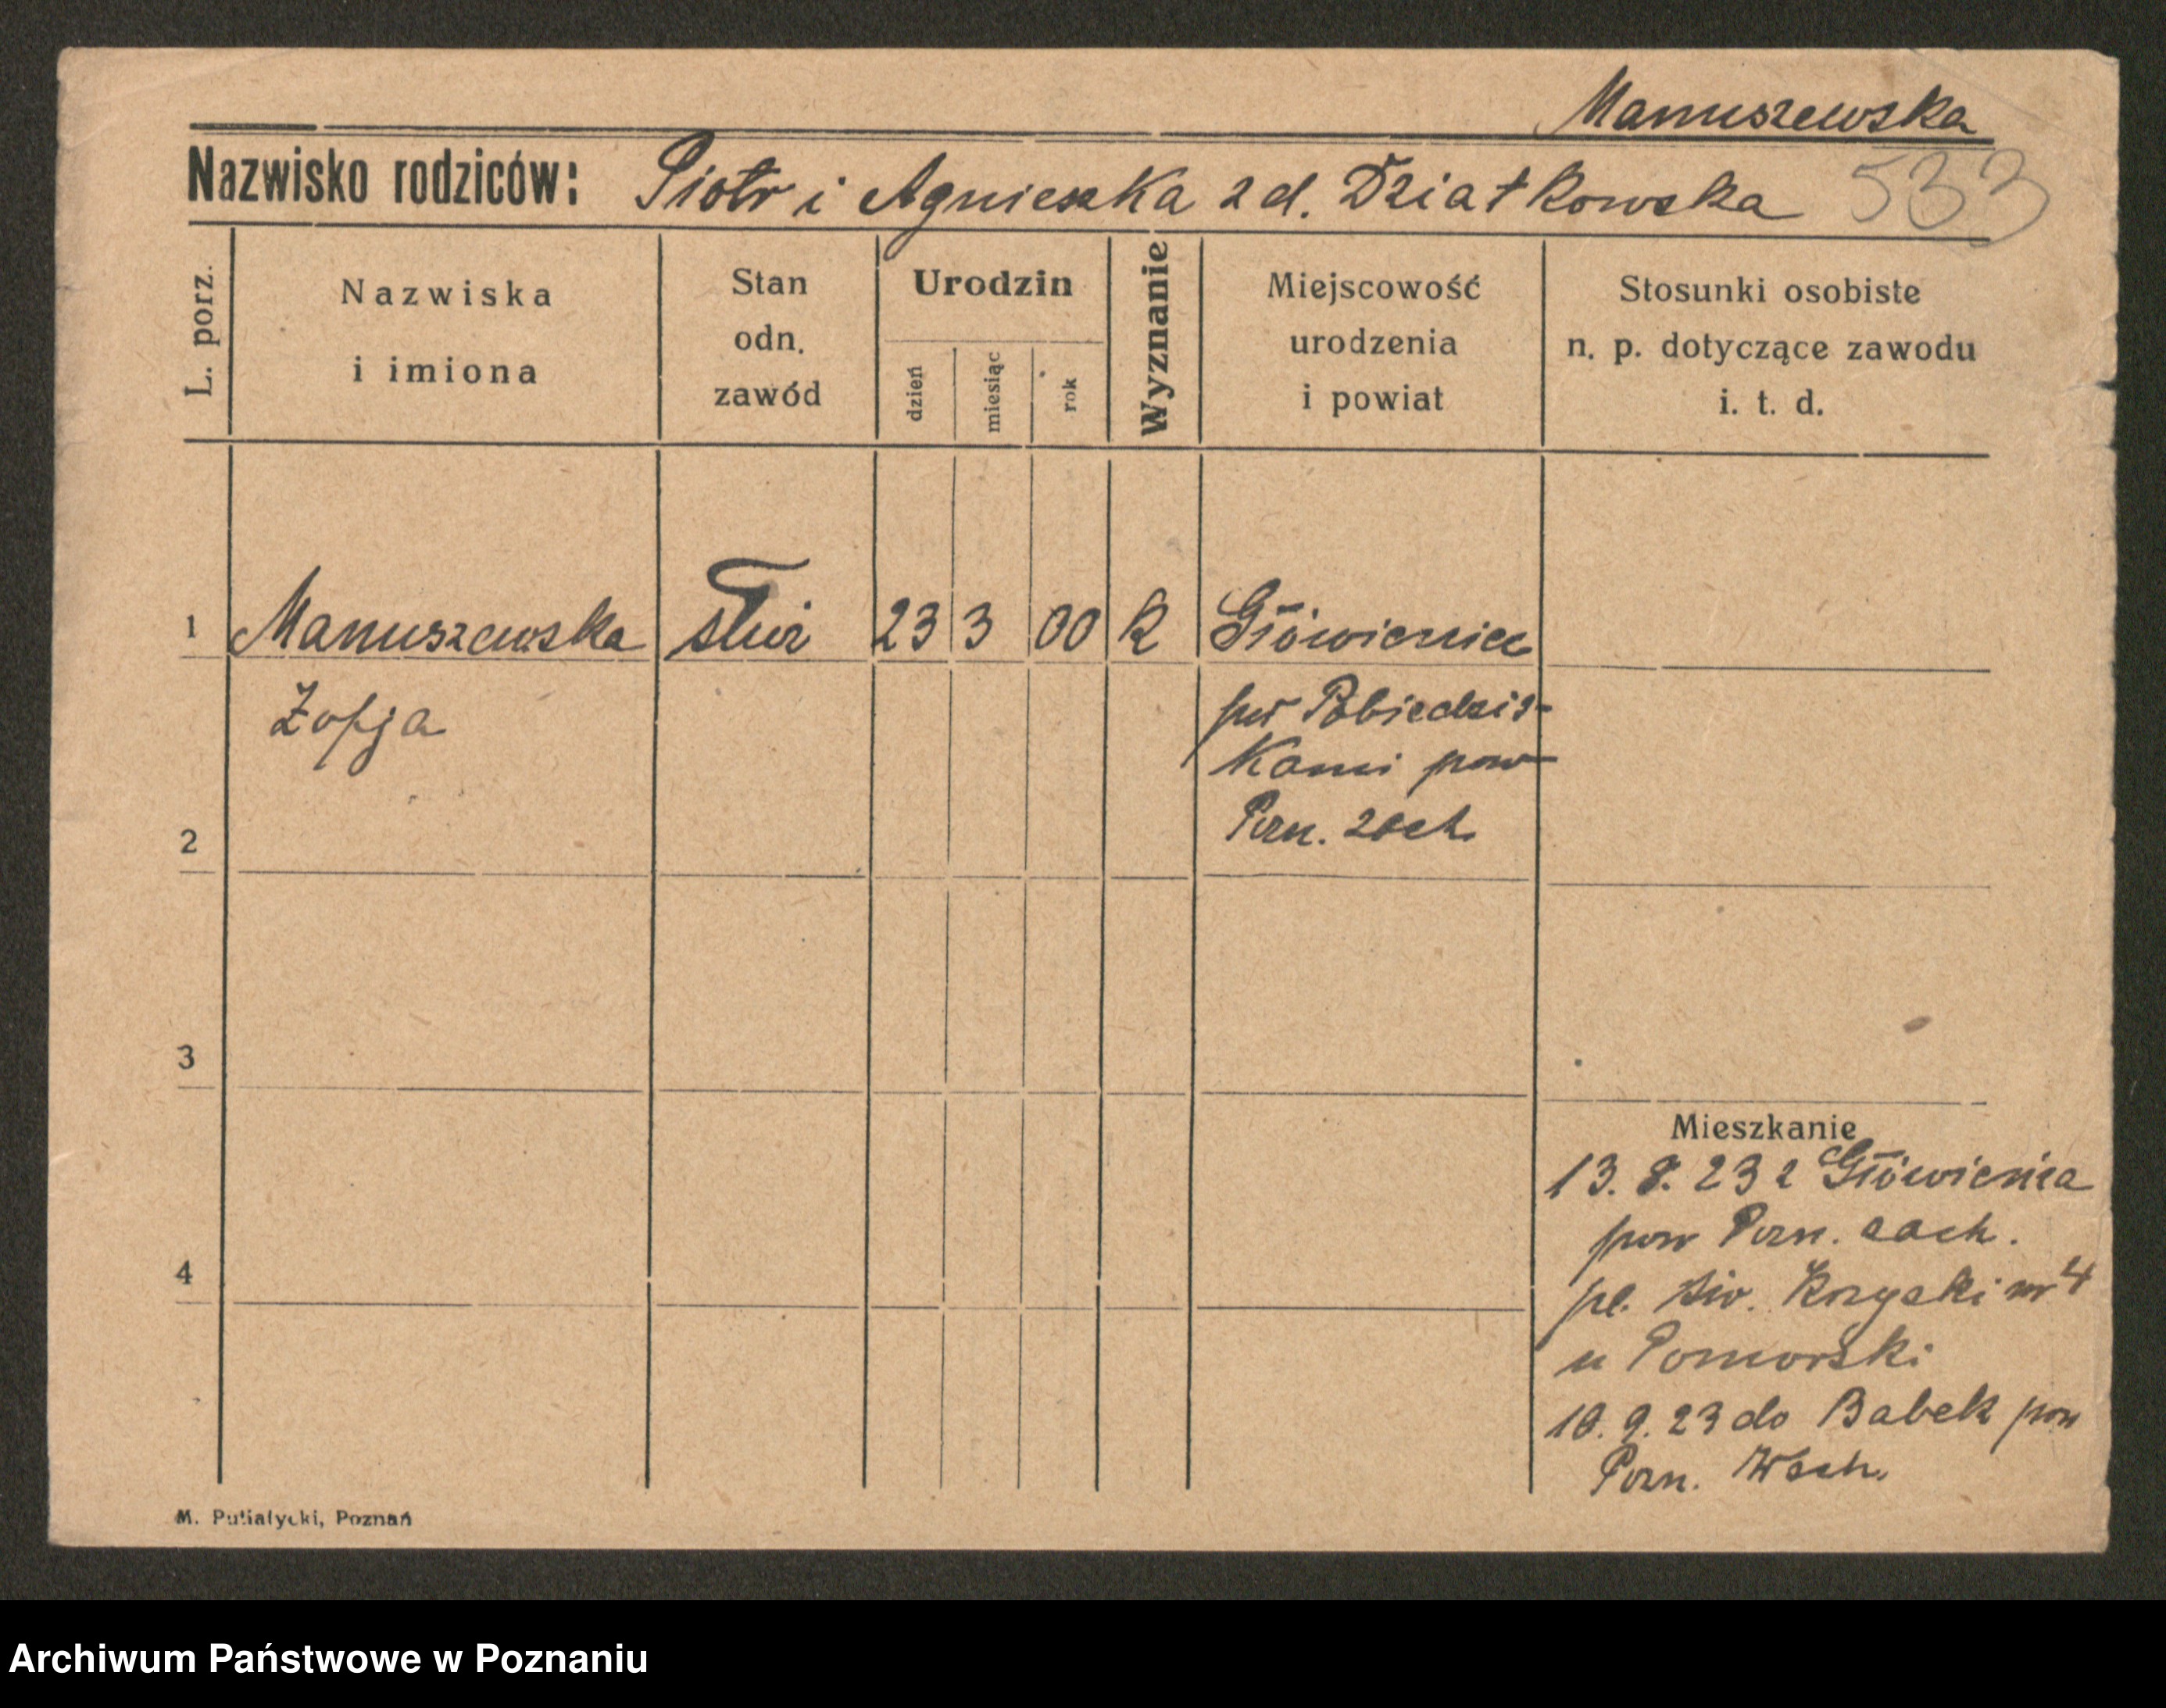 Manuszewska
Nazwisko rodziców: Piotr i Agnieszka z d. Działkowska 533
L. porz.
Nazwiska
i imiona
Stan
odn.
zawód
Urodzin
dzień
miesiąc
rok
Wyznanie
Miejscowość
urodzenia
i powiat
Stosunki osobiste
n. p. dotyczące zawodu
i. t. d.
1 Manuszewska służ 23 3 00 K Główieniec
Zofja
pod Pobiedzis-
kami pow
Pozn. zach.
2
3
4
Mieszkanie
13. 8. 23 z Główieńca
pow Pozn. zach.
pl. Św. Krzyski nr 4
u Pomorski
10. 9. 23 do Babek pow
Pozn. Wsch.
M. Putiatycki, Poznań
Archiwum Państwowe w Poznaniu